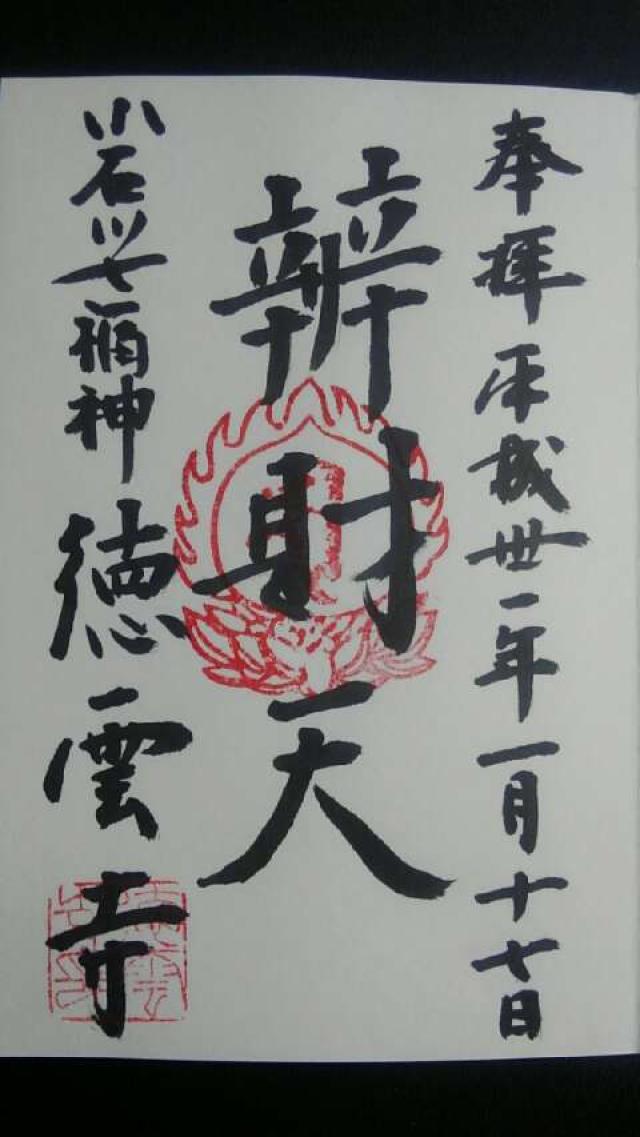 奉拝 平成卅一年一月十七日
辨財天
小石川七福神 徳雲寺